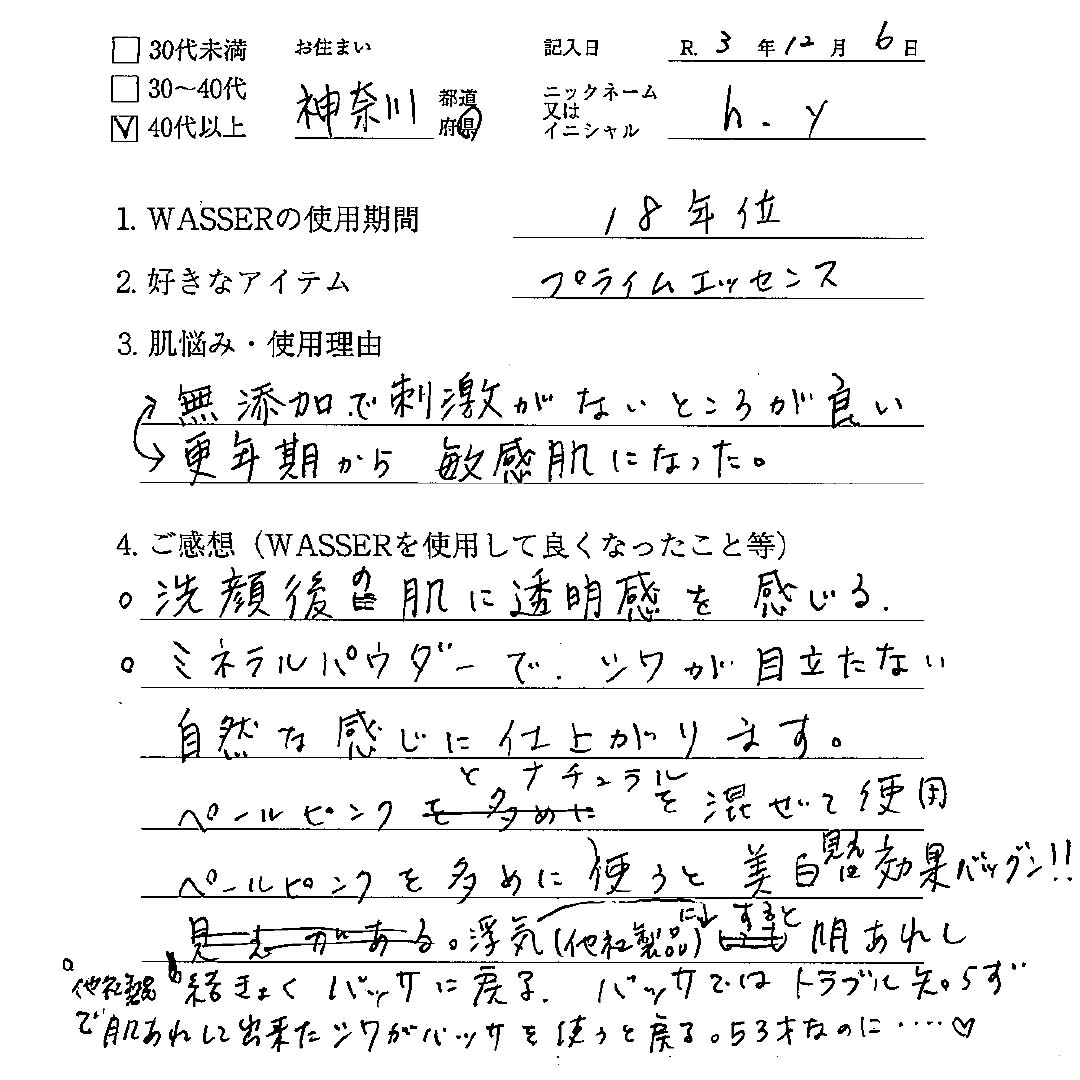 30代未満 お住まい 記入日 R. 3 年 12 月 6 日
30〜40代 神奈川 都道府県 ニックネーム又はイニシャル h.y
40代以上
1. WASSERの使用期間 18年位
2. 好きなアイテム プライムエッセンス
3. 肌悩み・使用理由
無添加で刺激がないところが良い
更年期から 敏感肌になった。
4. ご感想（WASSERを使用して良くなったこと等）
○ 洗顔後の肌に透明感を感じる.
○ ミネラルパウダーで、シワが目立たない
自然な感じに仕上がります。
ペールピンクとナチュラルを混ぜて使用
ペールピンクを多めに使うと美白見え効果バツグン!!
浮気(他社製品に)すると肌あれし
続きよくバッサに戻る. バッサではトラブル知らず
○ 他社製品で肌あれして出来たシワがバッサを使うと戻る。53才なのに‥‥♡